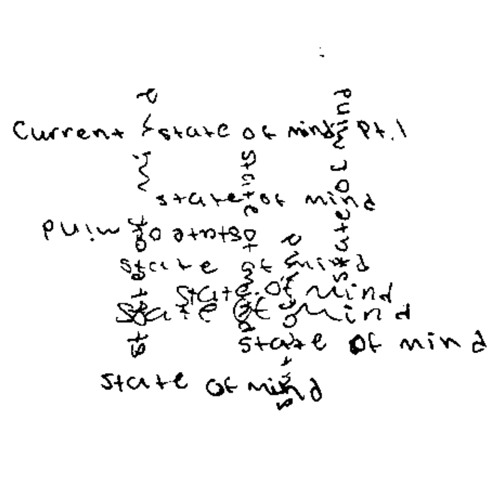 Current state of mind Pt.1
state of mind
state of mind
state of mind
state of mind
state of mind
state of mind
state of mind
state of mind
state of mind
state of mind
state of mind